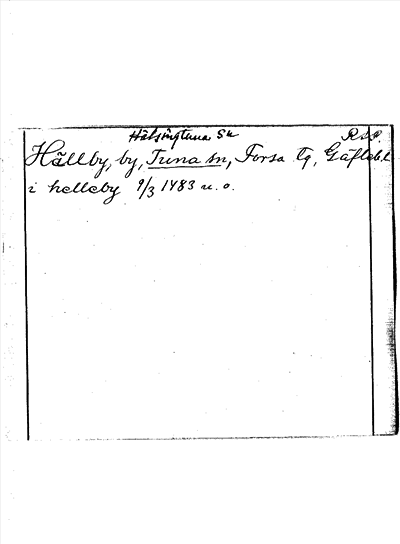 Hälsingtuna Sn R.A.P.
Hällby, by, Tuna sn, Forsa tg, Gäfleb.l.
i helleby 9/3 1483 u. o.